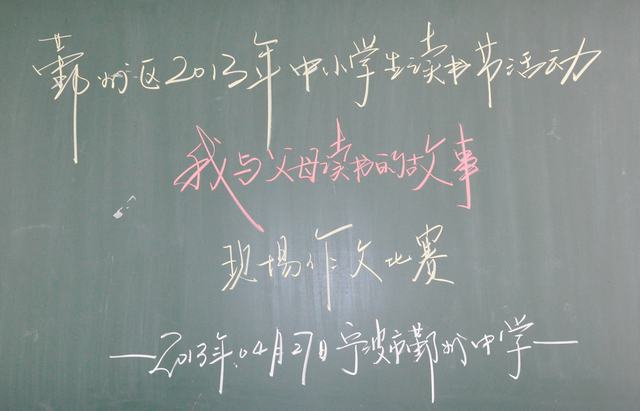 鄞州区2013年中小学生读书节活动
我与父母读书的故事
现场作文比赛
—2013年.04月27日宁波市鄞州中学—